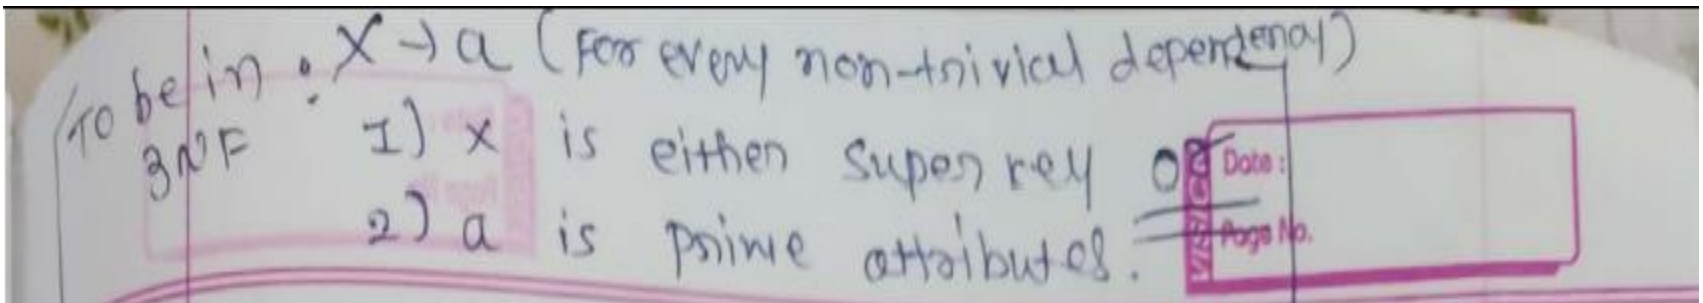 To be in : X → a (For every non-trivical dependenay)
3NF 1) x is either super key OR
Date :
2) a is prime attributes.
Page No.